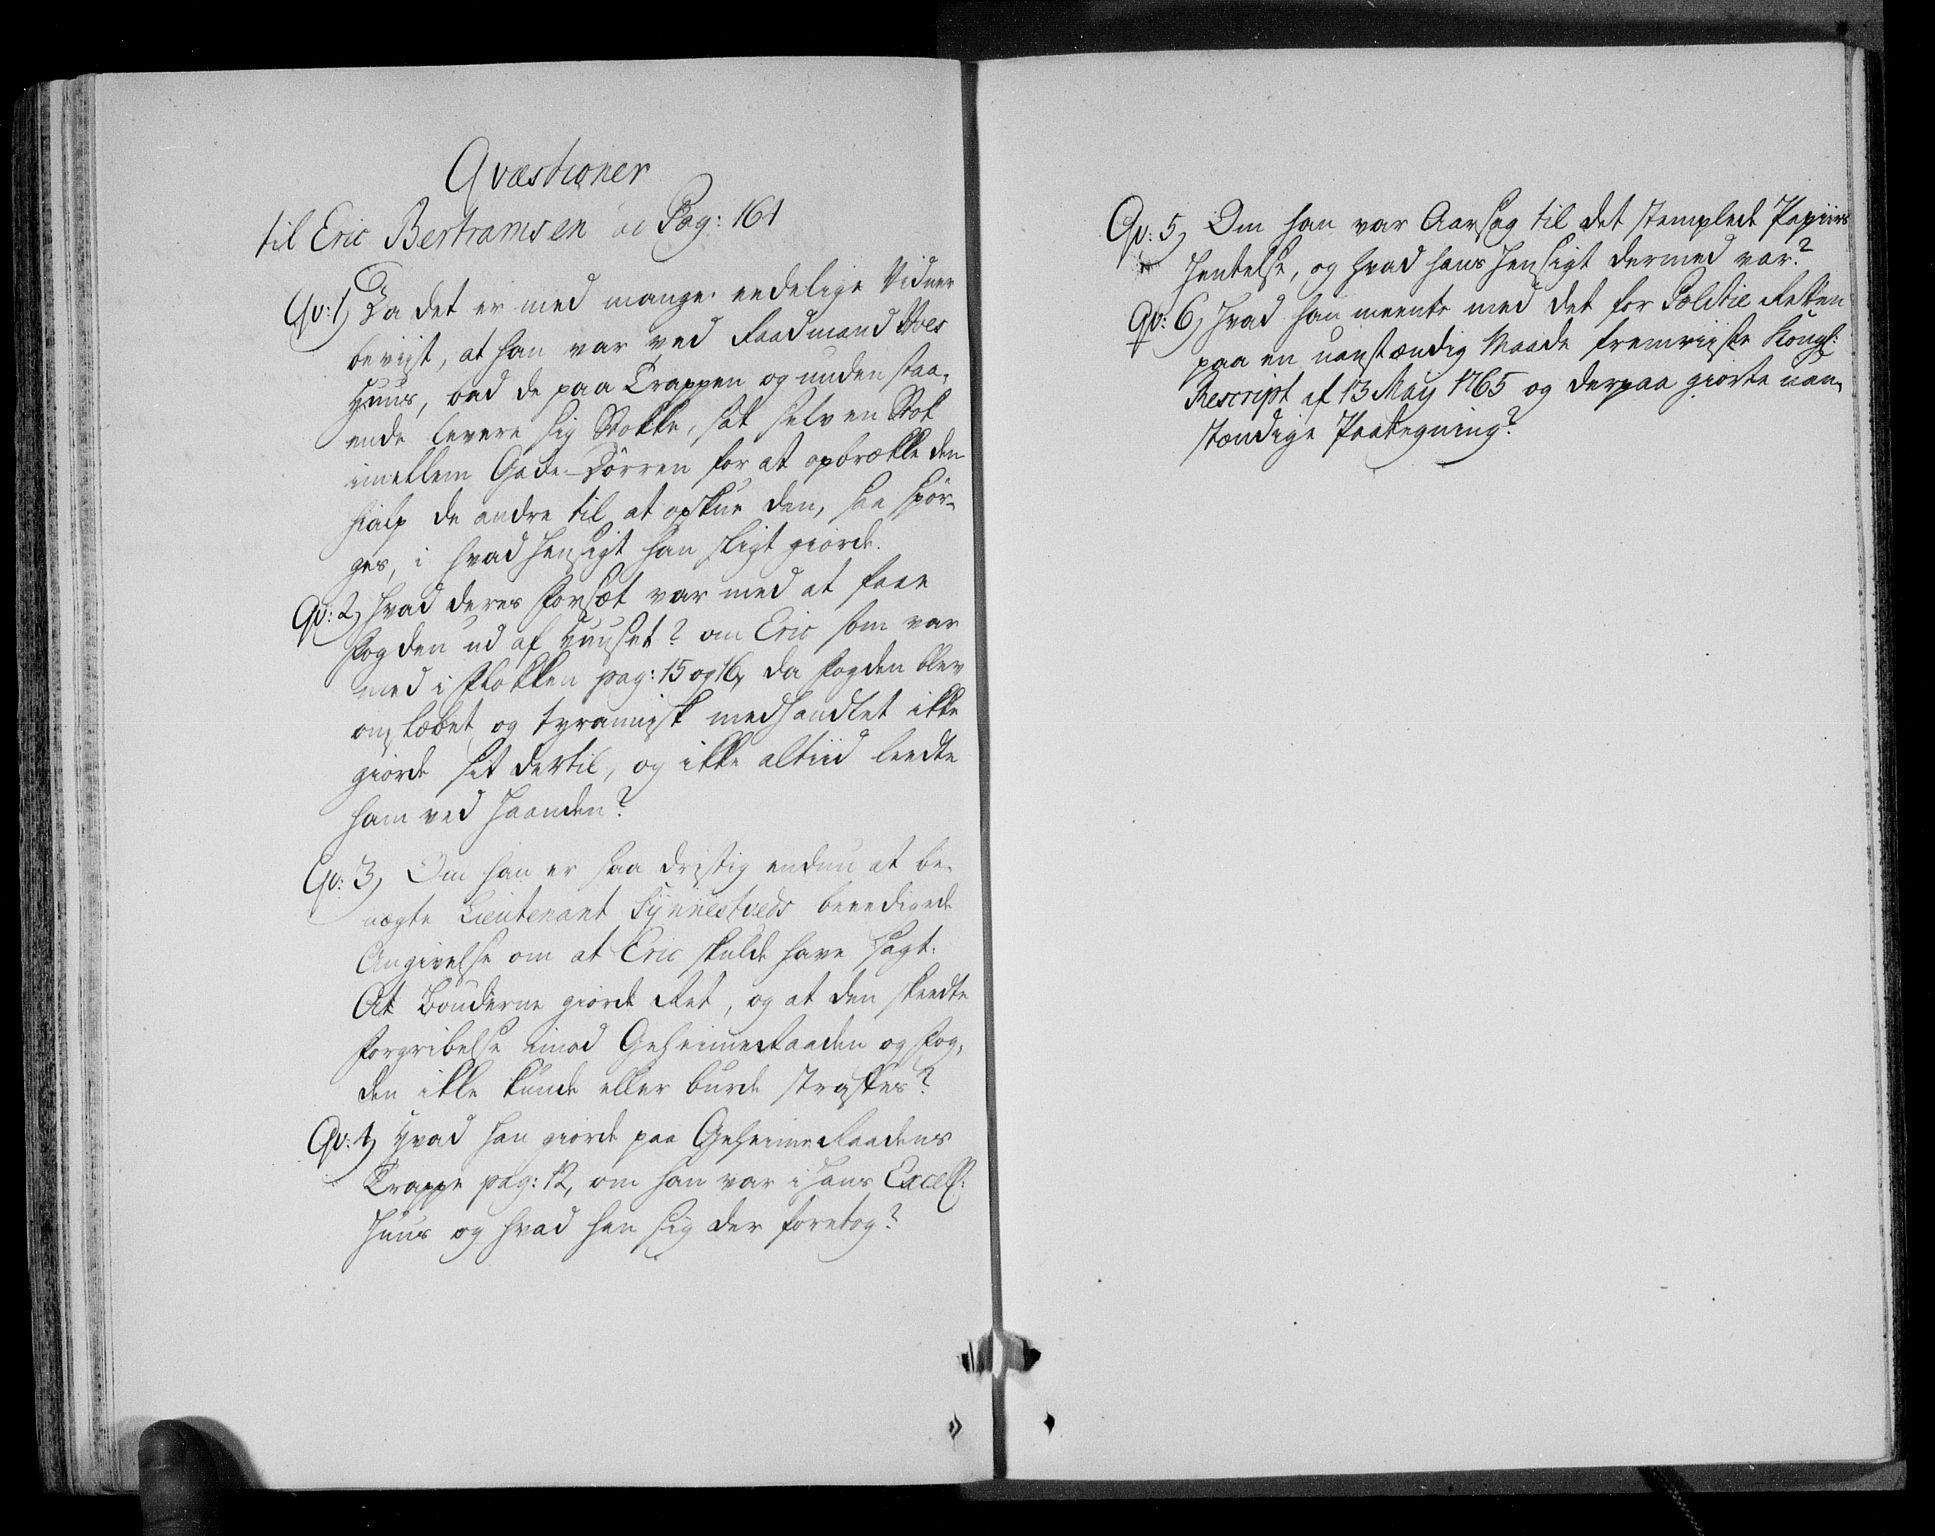 Qvæstioner
til Eric Bertramsen ad Pag: 161
Qv: 1, Da det er med mange eedelige Vidner
beviist, at han var ved Raadmand Stoes
Huus, bad de paa Trappen og neden staa-
ende levere sig Stokke, sat selv en Stok
imellem Gade-Dörren for at opbrække den
hialp de andre til at opskue den, saa spör-
ges, i hvad Hensigt han sligt giorde.
Qv: 2, Hvad deres Forsæt var med at faae
Fogden ud af Huuset? om Eric som var
med i Flokken pag: 15 og 16, da Fogden blev
omlöbet og tyrannisk medhandlet ikke
giorde sit dertil, og ikke altiid leedte
ham ved Haanden?
Qv: 3, Om han er saa dristig endnu at be-
nægte Lieutenant Synnestveds beeedigede
Angivelse om at Eric skulde have sagt:
At Bönderne giorde Ret, og at den skeedte
Forgribelse imod GeheimeRaaden og Fog-
den ikke kunde eller burde straffes?
Qv: 4, Hvad han giorde paa GeheimeRaadens
Trappe pag: 12, om han var i Hans Excell:
Huus og hvad han sig der foretog?
Qv: 5, Om han var Aarsag til det stemplede Papiirs
Hentelse, og hvad hans Hensigt dermed var?
Qv: 6, Hvad han meente med det for Politie Retten
paa en uanstændig Maade fremviiste Kongl:
Rescript af 13 May 1765 og derpaa giorte uan-
stændige Paategning?